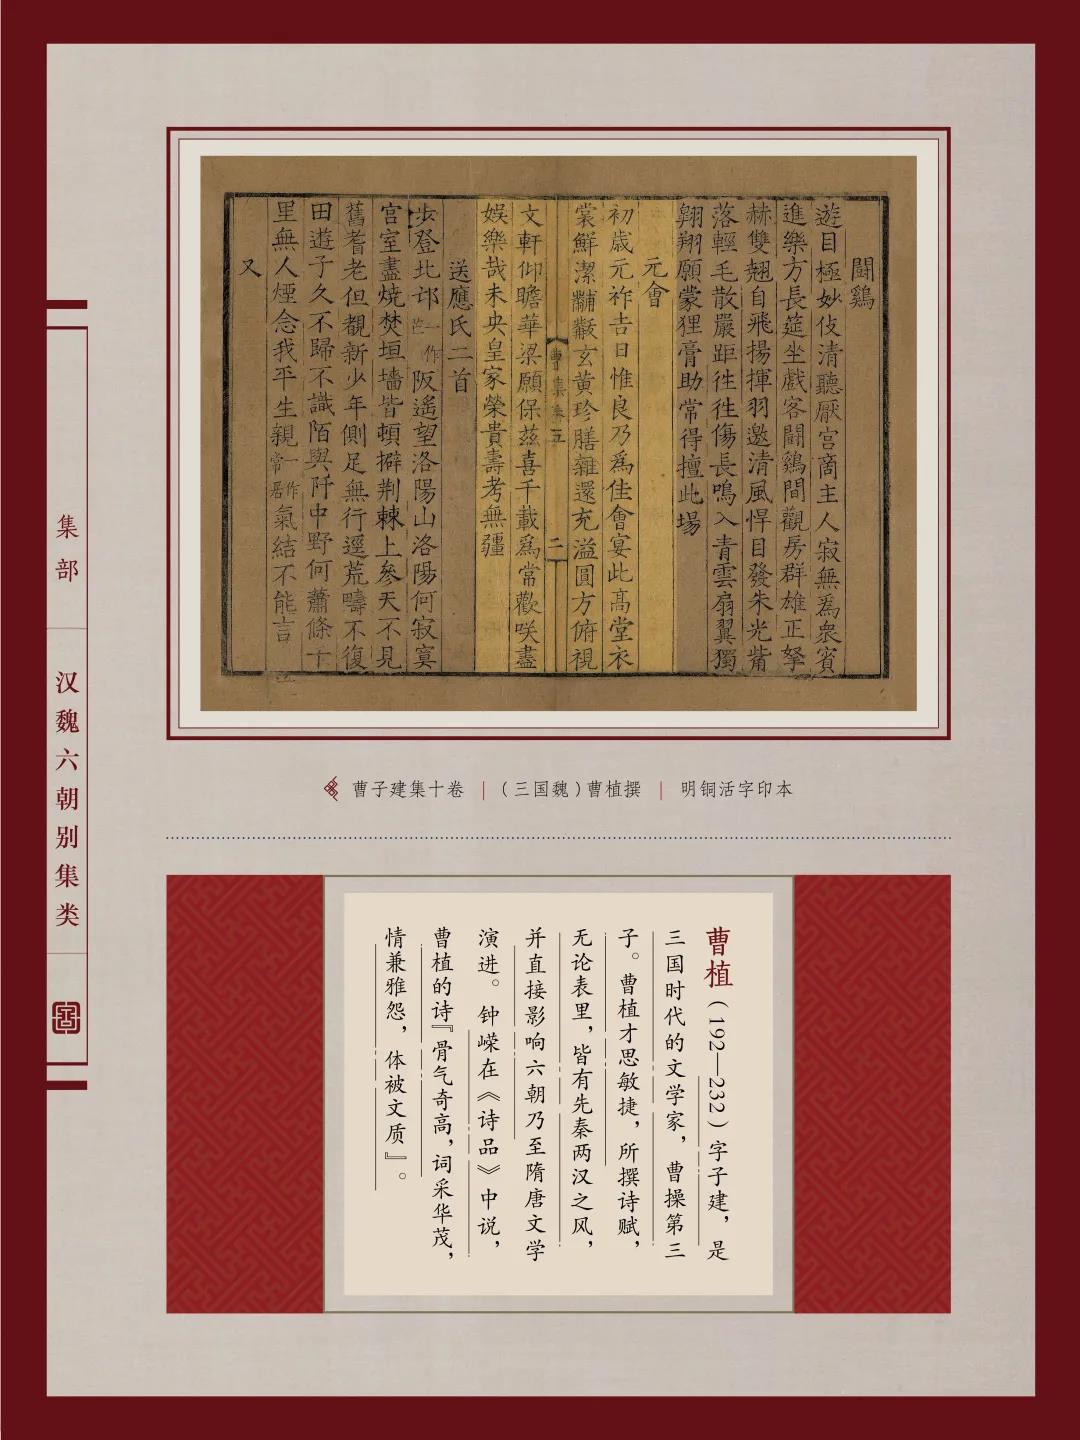 集部
汉魏六朝别集类
鬭鷄
遊目極妙伎清聽厭宫商主人寂無爲衆賓
進樂方長筵坐戲客鬭鷄間觀房群雄正孥
赫雙翹自飛揚揮羽邀清風悍目發朱光觜
落輕毛散嚴距徃徃傷長鳴入青雲扇翼獨
翱翔願蒙狸膏助常得擅此場
元會
初歲元祚吉日惟良乃爲佳會宴此髙堂衣
裳鮮潔黼黻玄黄珍膳雜還充溢圓方俯視
文軒仰瞻華梁願保茲喜千載爲常歡咲盡
娯樂哉未央皇家榮貴壽考無疆
送應氏二首
步登北邙一作芒阪遥望洛陽山洛陽何寂寞
宫室盡燒焚垣墻皆頓擗荆棘上參天不見
舊耆老但覩新少年側足無行逕荒疇不復
田遊子久不歸不識陌與阡中野何蕭條千
里無人煙念我平生親一作常居氣結不能言
又
曹集卷五
二
曹子建集十卷 | (三国魏)曹植撰 | 明铜活字印本
曹植(192—232)字子建，是
三国时代的文学家，曹操第三
子。曹植才思敏捷，所撰诗赋，
无论表里，皆有先秦两汉之风，
并直接影响六朝乃至隋唐文学
演进。钟嵘在《诗品》中说，
曹植的诗『骨气奇高，词采华茂，
情兼雅怨，体被文质』。